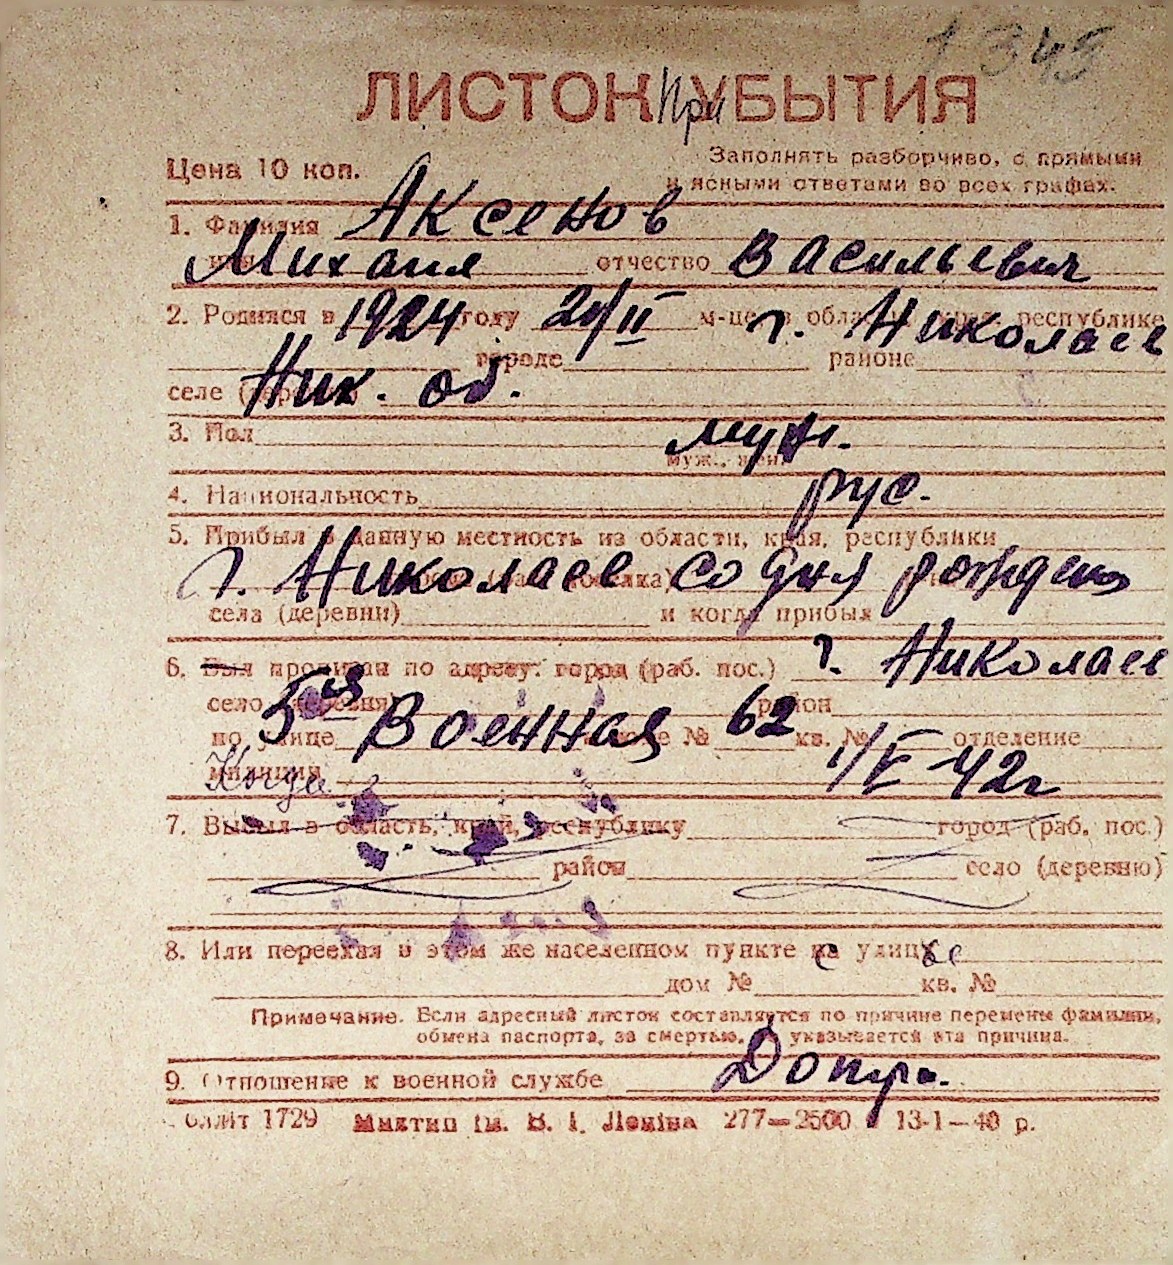 1345
ЛИСТОК При УБЫТИЯ
Цена 10 коп.
Заполнять разборчиво, с прямыми
и ясными ответами во всех графах.
1. Фамилия Аксенов
Имя Михаил отчество Васильевич
2. Родился в 1924 году 20/II м-це в области, края, республике г. Николаев
городе районе
селе (деревне) Ник. об.
3. Пол муж.
муж., жен.
4. Национальность рус.
5. Прибыл в данную местность из области, края, республики
г. Николаев со дня рождения
села (деревни) и когда прибыл
6. Был прописан по адресу: город (раб. пос.) г. Николаев
село (деревня) район
по улице 5ая Военная № 62 кв. № отделение
милиции Когда 1/V-42г
7. Выбыл в область, край, республику город (раб. пос.)
район село (деревню)
8. Или переехал в этом же населенном пункте на улицу
дом № кв. №
Примечание. Если адресный листок составляется по причине перемены фамилии,
обмена паспорта, за смертью, указывается эта причина.
9. Отношение к военной службе Допр.
1729 Миктип ім. В. І. Леніна 277—2500 13-1—40 р.